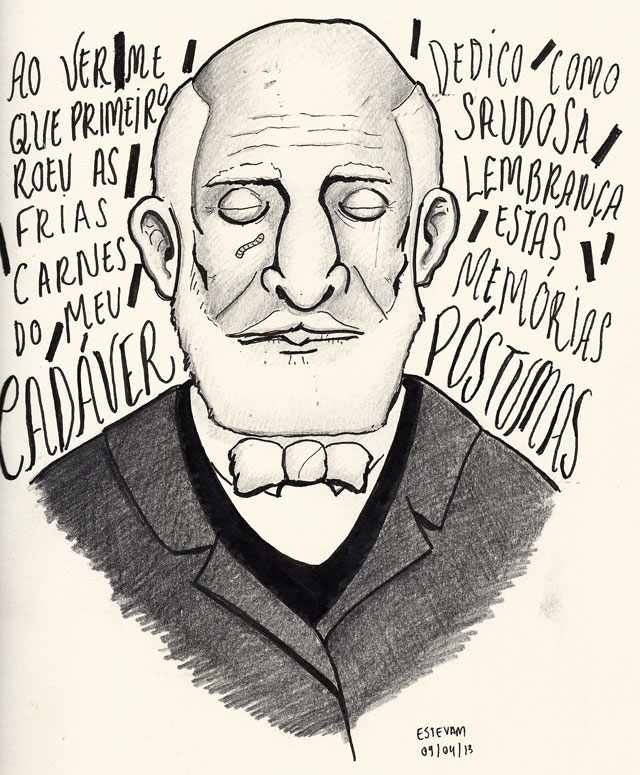 AO VERME
QUE PRIMEIRO
ROEU AS
FRIAS
CARNES
DO MEU
CADÁVER
DEDICO COMO
SAUDOSA
LEMBRANÇA
ESTAS
MEMÓRIAS
PÓSTUMAS
ESTEVAM
09/04/13